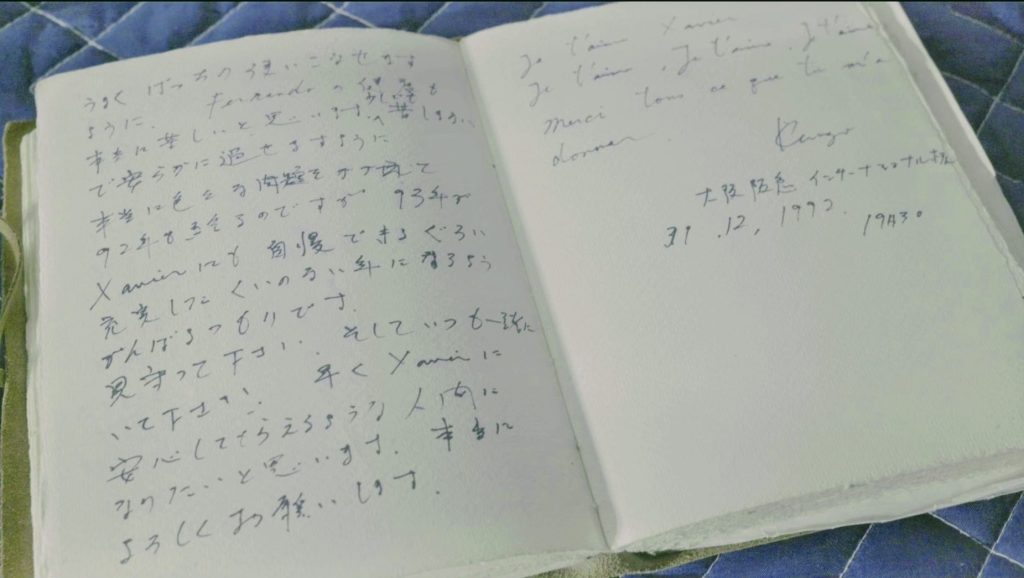 うまく ばっちり 使いこなせる
ように. Fernando の
本当に 苦しいと思います. 苦しまない
で 安らかに過せますように
本当に色々な問題を
92年も 終るのですが 93年が
Xavierにも 自慢できるぐらい
充実した くいのない年になるよう
がんばるつもりです.
見守って下さい. そしていつも一緒に
いて下さい. 早く Xavierに
安心してもらえるような人間に
なりたいと思います. 本当に
よろしくお願いします.
Je t'aime Xavier
Je t'aime, Je t'aime, Je t'aime
Merci tous ce que tu m'a
donner.
Kengo
大阪阪急インターナショナル
31. 12, 1992.